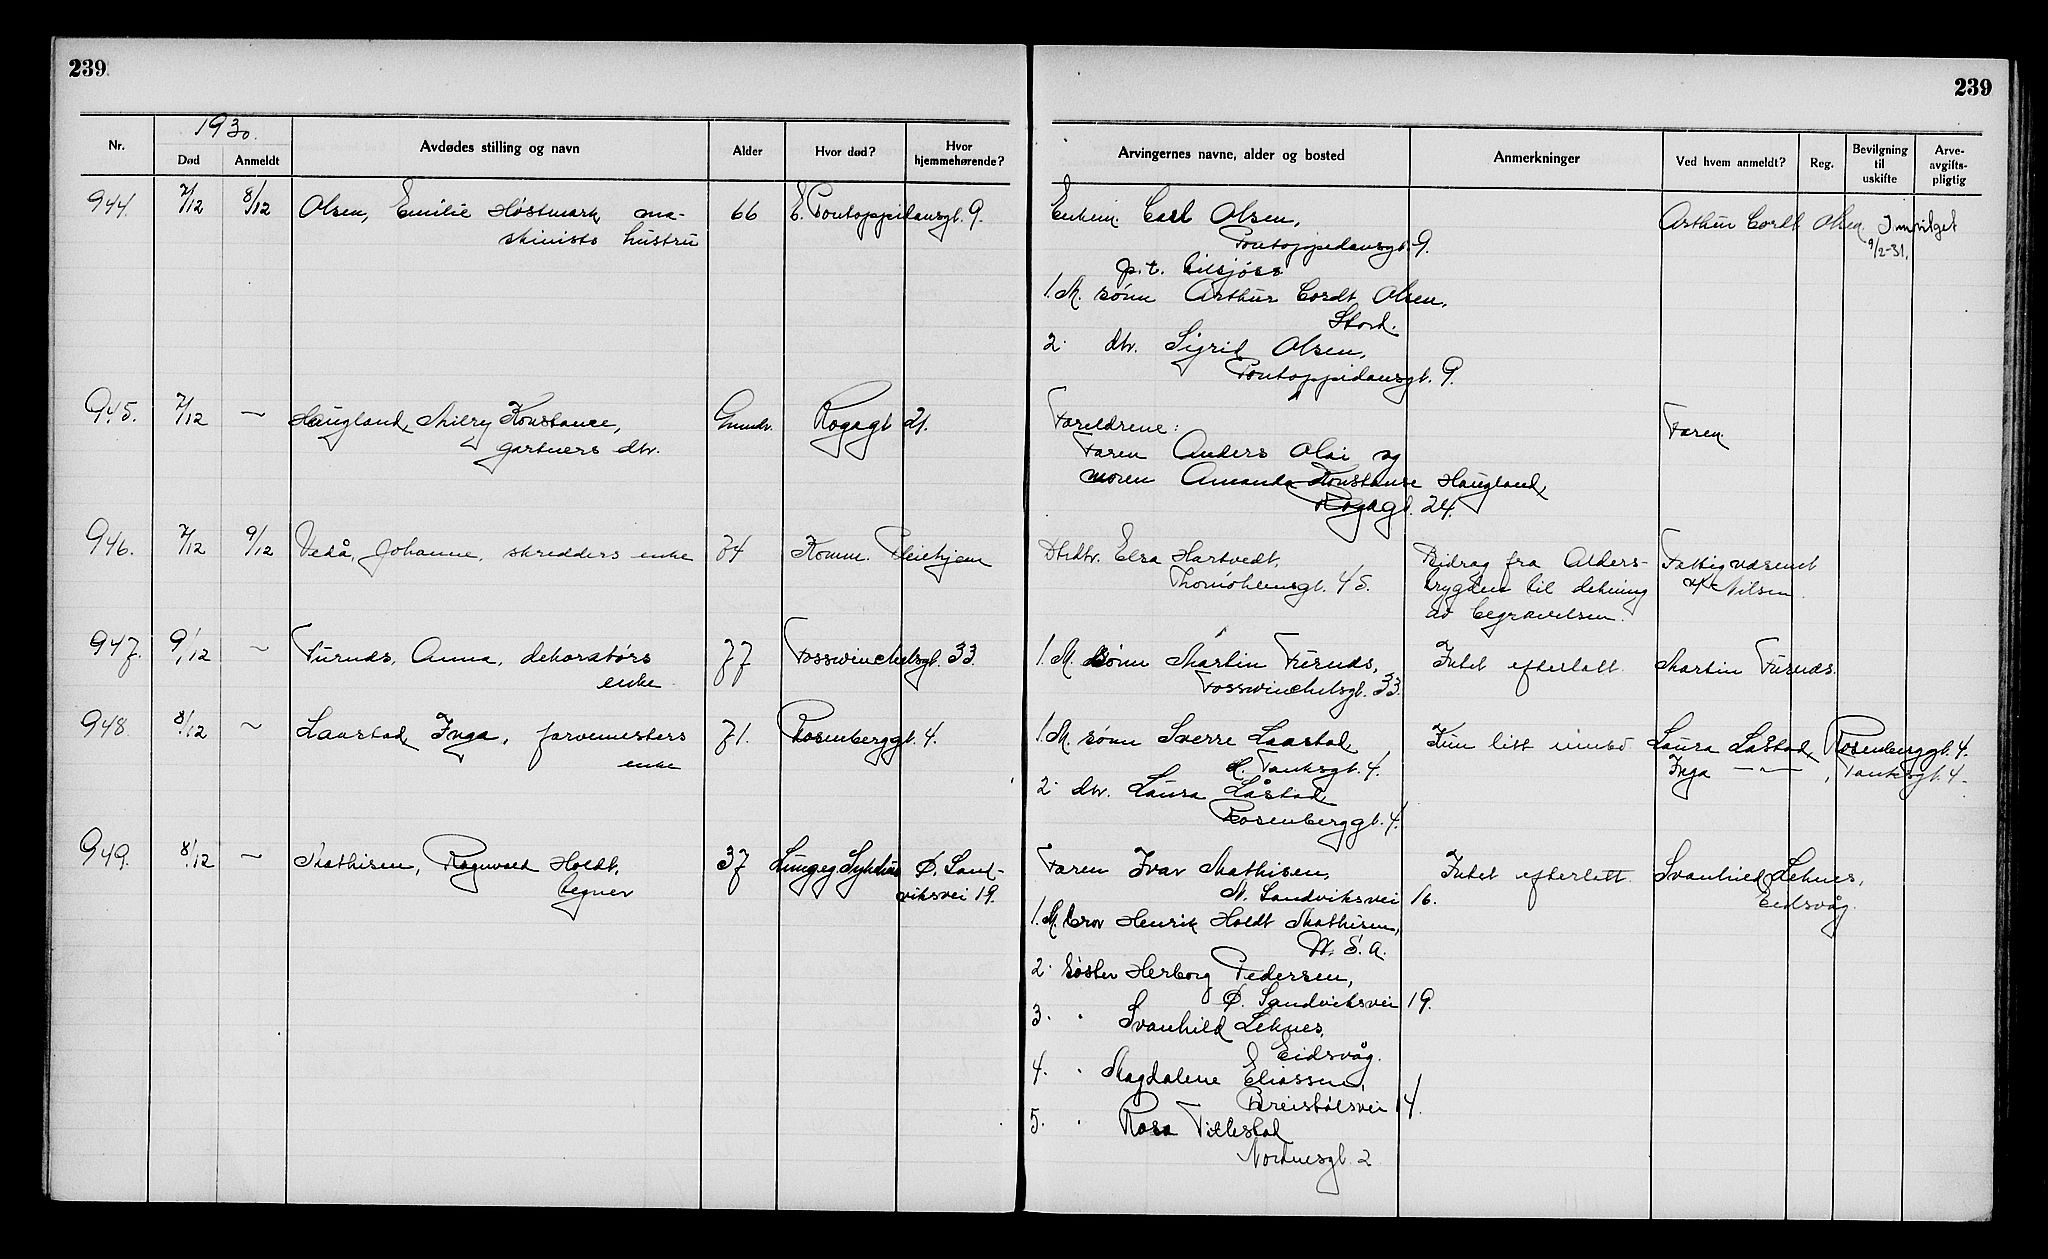 239
239
1930.
Nr.
Død
Anmeldt
Avdødes stilling og navn
Alder
Hvor død?
Hvor hjemmehørende?
Arvingernes navne, alder og bosted
Anmerkninger
Ved hvem anmeldt?
Reg.
Bevilgning til uskifte
Arve-avgifts-pligtig
944. 7/12 8/12 Olsen, Emilie Høstmark, ma- 66 E. Pontoppidansgt. 9.
skinists hustru
Enkem. Carl Olsen,
Pontoppidansgt. 9.
p.t. tilsjøss
1. M. sønn Arthur Cordt Olsen,
Stord.
2. dtr. Sigrid Olsen,
Pontoppidansgt. 9.
Arthur Cordt Olsen. Innvilget
9/2-31.
945. 7/12 — Haugland, Konstance,
gartners dtr.
Rogagt 21.
Foreldrene:
Faren Anders Olai og
moren Amanda Konstanse Haugland,
Rogagt. 24.
Faren.
946. 7/12 9/12 Vedå, Johanne, skredders enke 74 Komm. Pleiehjem
Dtrdtr. Elsa Hartvedt,
Thormøhlensgt. 45.
Bidrag fra Alders-
trygden til dekning
av begravelsen.
Fattigvæsenet
v/ Nilsen.
947. 9/12 — Furnds, Anna, dekoratørs 77 Fosswinckelsgt. 33.
enke
1. M. sønn Martin Furnds,
Fosswinckelsgt. 33.
Intet efterlatt.
Martin Furnds.
948. 8/12 — Laastad, Inga, farvemesters 71. Rosenberggt. 4.
enke
1. M. sønn Sverre Laastad,
Tanksgt. 4.
2. dtr. Laura Låstad
Rosenberggt. 4.
Kun litt innbo
Laura Låstad, Rosenberggt. 4.
Inga — " — , Tanksgt. 4.
949. 8/12 — Mathisen, Ragnvald Holdt, 37 Lungeg. Sykehus Ø. Sand-
tegner
viksvei 19.
Faren Ivar Mathisen,
N. Sandviksvei 16.
1. M. bror Henrik Holdt Mathisen,
U. S. A.
2. søster Herborg Pedersen,
Ø. Sandviksvei 19.
3. " Svanhild Leknes,
Eidsvåg.
4. " Magdalene Eliassen,
Breistølsvei 14.
5. " Rosa Tillestad
Nordnesgt. 2
Intet efterlatt.
Svanhild Leknes,
Eidsvåg.